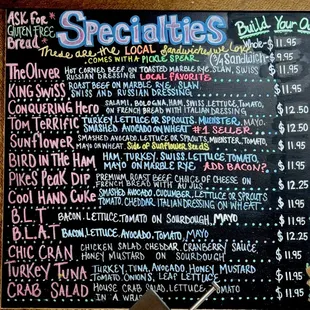 ASK For
GLUTEN FREE
Bread
Specialties
These are the LOCAL Sandwiches we love
..COMES WITH A PICKLE SPEAR..
Build Your O
whole- $11.95
1/2 SANDWICH-
The Oliver HOT CORNED BEEF ON TOASTED MARBLE RYE, SLAW, SWISS
RUSSIAN DRESSING LOCAL FAVORITE $11.95
KING SWISS ROAST BEEF ON MARBLE RYE, SLAW,
SWISS AND RUSSIAN DRESSING $11.95
Conquering Hero SALAMI, BOLOGNA, HAM, SWISS, LETTUCE, TOMATO,
ON FRENCH BREAD WITH ITALIAN DRESSING $12.50
Tom Terrific TURKEY, LETTUCE OR SPROUTS, MUENSTER, MAYO,
SMASHED AVOCADO ON WHEAT #1 SELLER $12.50
Sunflower SMASHED AVOCADO, LETTUCE OR SPROUTS, MUENSTER, TOMATO,
MAYO ON WHEAT Side of Sunflower Seeds $11.95
BIRD IN THE HAM HAM, TURKEY, SWISS, LETTUCE, TOMATO,
MAYO ON MARBLE RYE ADD BACON? $11.95
PIKES PEAK DIP PREMIUM ROAST BEEF CHOICE OF CHEESE ON
FRENCH BREAD WITH AU JUS $12.25
Cool Hand Cuke SMASHED AVOCADO, CUCUMBER, LETTUCE OR SPROUTS
TOMATO, CHEDDAR, ITALIAN DRESSING ON WHEAT $11.95
B.L.T BACON, LETTUCE, TOMATO ON SOURDOUGH, MAYO $11.95
B.L.A.T BACON, LETTUCE, AVOCADO, TOMATO, MAYO $12.25
CHIC CRAN CHICKEN SALAD, CHEDDAR, CRANBERRY SAUCE
HONEY MUSTARD ON SOURDOUGH $11.95
TURKEY TUNA TURKEY, TUNA, AVOCADO, HONEY MUSTARD
TOMATO, ONIONS, LEAF LETTUCE $11.95
CRAB SALAD HOUSE CRAB SALAD, LETTUCE, TOMATO
IN A WRAP $11.95